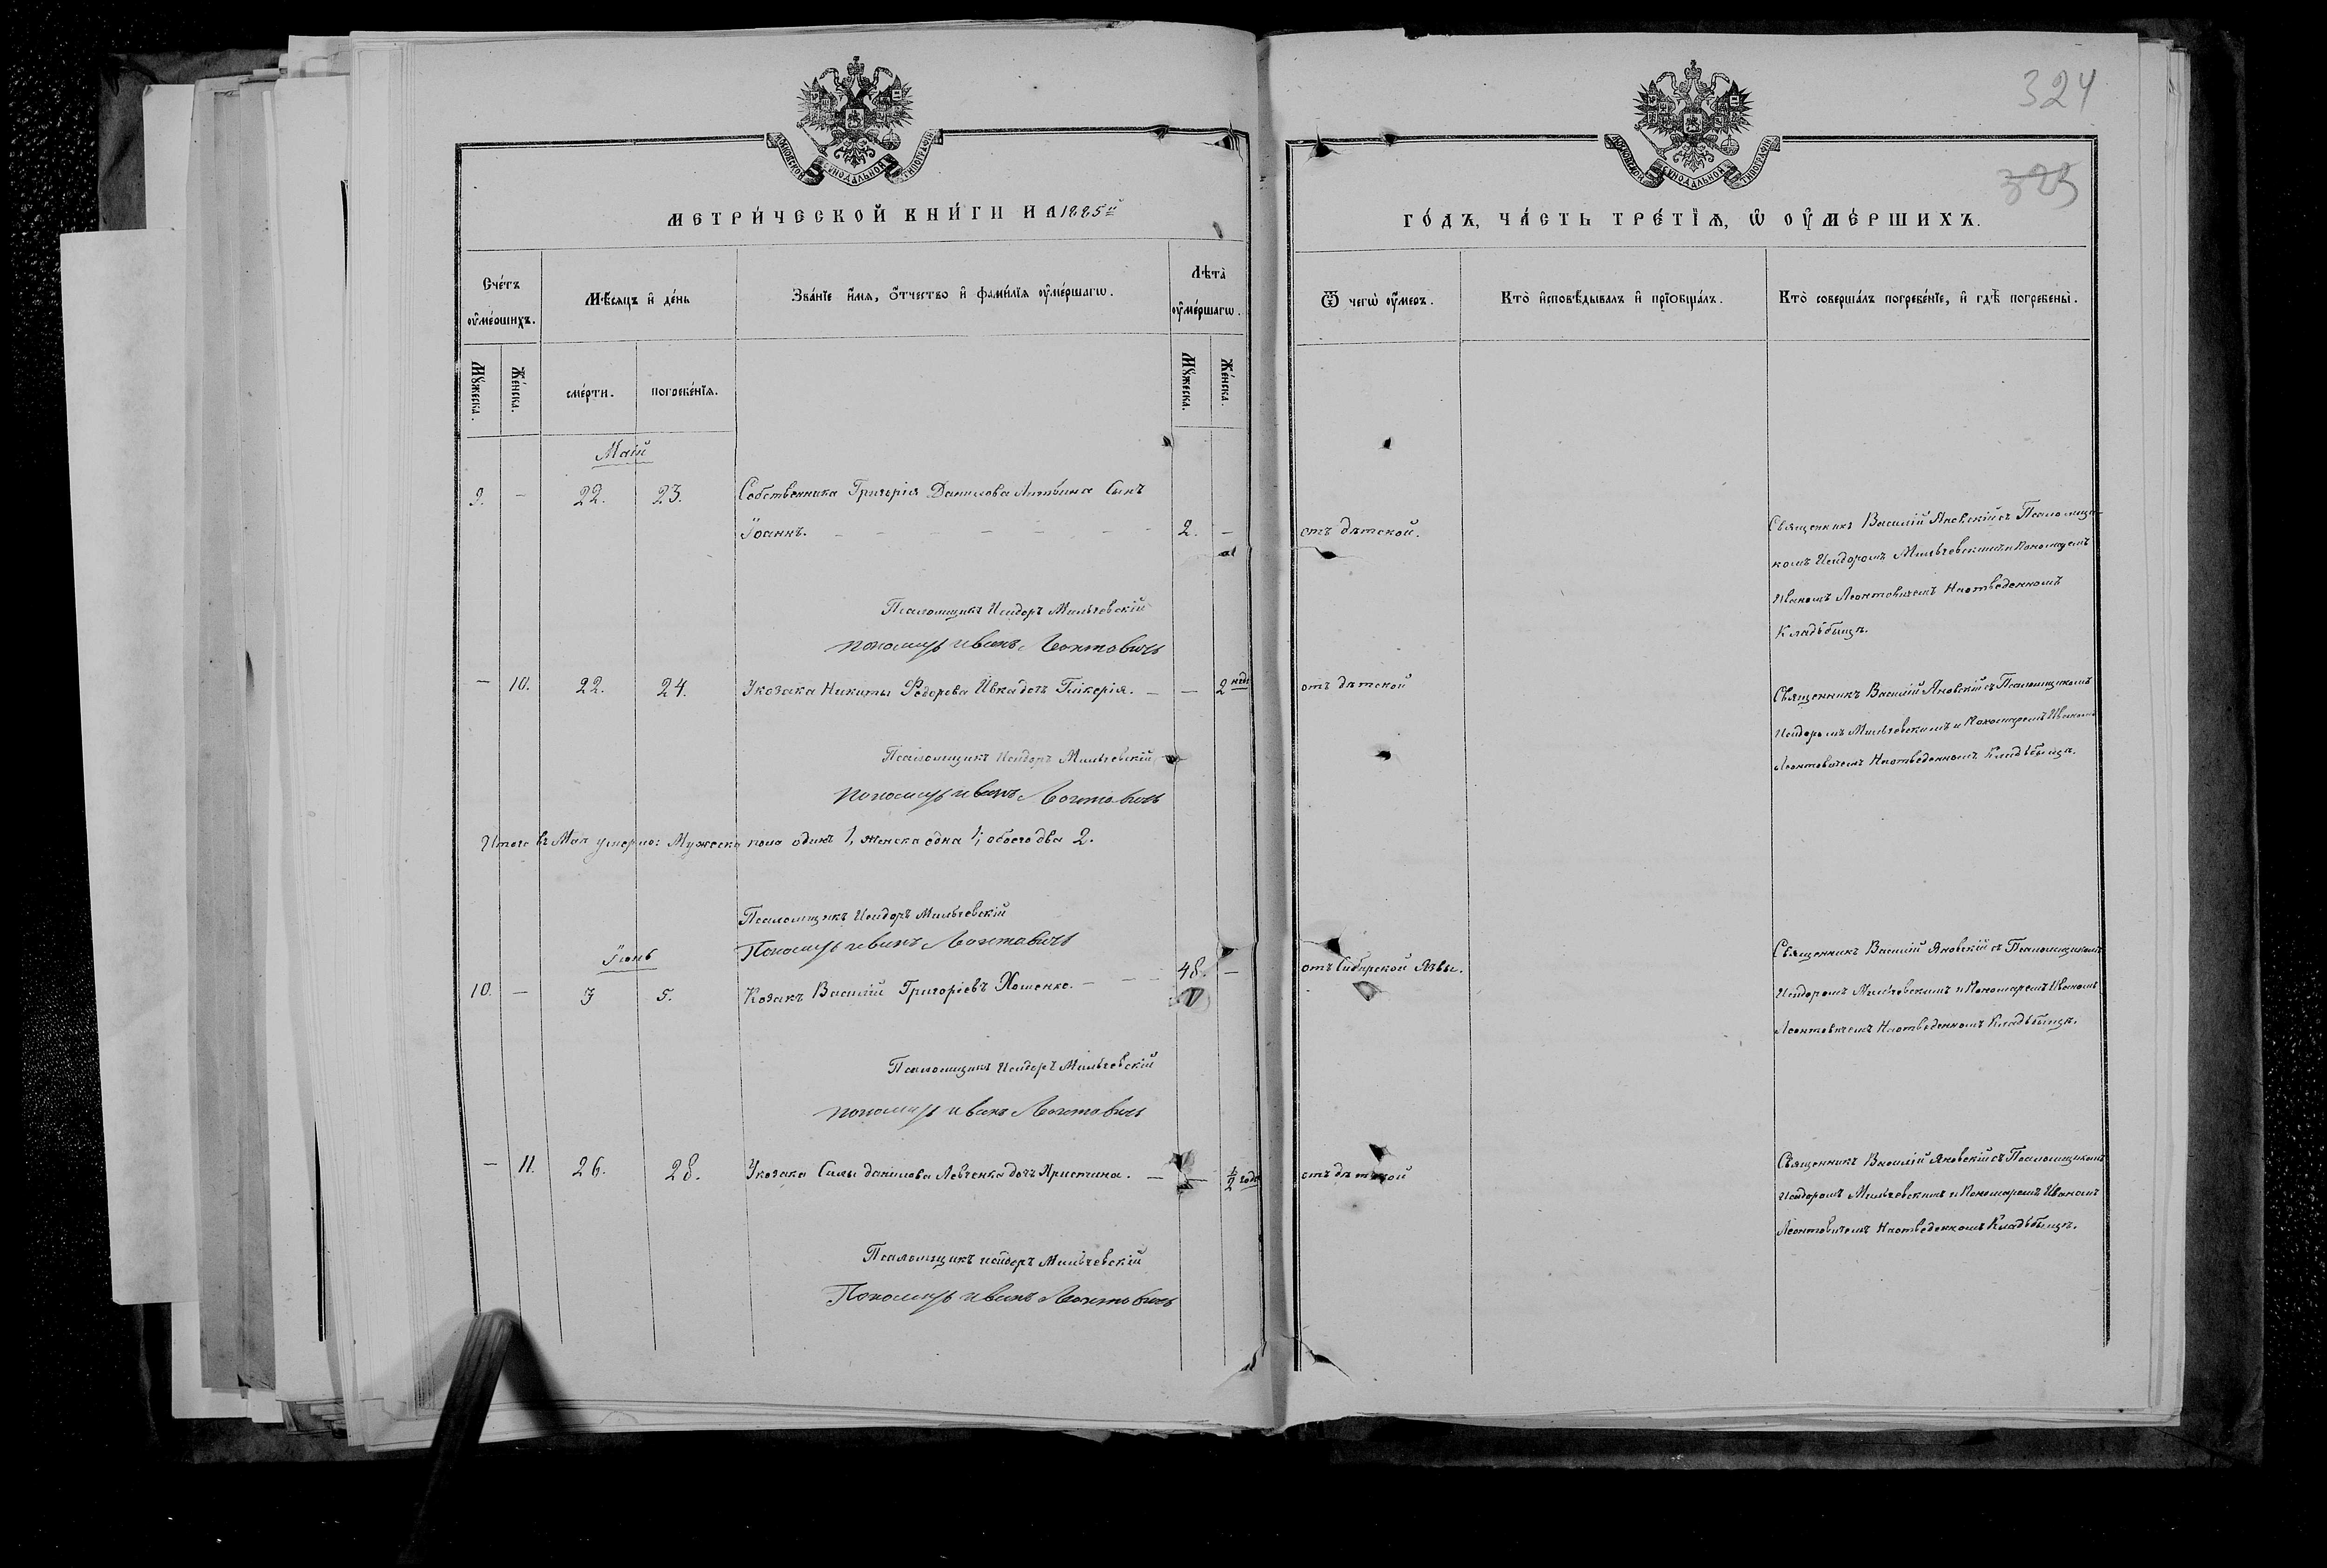 324
325
МОСКОВСКОЙ СѴНОДАЛЬНОЙ ТИПОГРАФІИ
МОСКОВСКОЙ СѴНОДАЛЬНОЙ ТИПОГРАФІИ
МЕТРИ́ЧЕСКОЙ КНИ́ГИ НА 1885й
ГО́ДЪ, ЧА́СТЬ ТРЕ́ТЇѦ, Ѡ҆ ОУ҆МЕ́РШИХЪ.
Сче́тъ оу҆ме́ршихъ.
Мѣ́сяцъ и҆ де́нь
Зва́нїе и҆́мя, о҆́тчество и҆ фами́лїя оу҆ме́ршагѡ.
Лѣта̀ оу҆ме́ршагѡ.
Ѿ чегѡ̀ оу҆́меръ.
Кто̀ и҆сповѣ́дывалъ и҆ прїобща́лъ.
Кто̀ соверша́лъ погребе́нїе, и҆ гдѣ̀ погребены̀.
Мꙋ́жеска.
Же́нска.
сме́рти.
погребе́нїя.
Мꙋ́жеска.
Же́нска.
Маій
9. — 22. 23. Собственника Григорія Данилова сынъ
Іоаннъ. — — — — — — 2. — отъ дѣтской.
Священникъ Василій Яновскій съ Псаломщи-
комъ Исидоромъ Мильчевскимъ и Пономаремъ
Иваномъ Леонтовичемъ На отведенномъ
Кладбищѣ.
Псаломщикъ Исидоръ Мильчевскій
Пономарь Иванъ Леонтовичъ
— 10. 22. 24. У козака Никиты Федорова Ивка дочь Гликерія. — — 2 нед. отъ дѣтской
Священникъ Василій Яновскій съ Псаломщикомъ
Исидоромъ Мильчевскимъ и Пономаремъ Иваномъ
Леонтовичемъ На отведенномъ Кладбищѣ.
Псаломщикъ Исидоръ Мильчевскій
Пономарь Иванъ Леонтовичъ
Итого въ Маѣ умерло: Мужеска пола одинъ 1, женска одна 1; обоего два 2.
Псаломщикъ Исидоръ Мильчевскій
Пономарь Иванъ Леонтовичъ
Іюнь
10. — 3 5. Козакъ Василій Григоріевъ Хоменко. — — — 48. — отъ Сибирской Язвы.
Священникъ Василій Яновскій съ Псаломщикомъ
Исидоромъ Мильчевскимъ и Пономаремъ Иваномъ
Леонтовичемъ На отведенномъ Кладбищѣ.
Псаломщикъ Исидоръ Мильчевскій
Пономарь Иванъ Леонтовичъ
— 11. 26. 28. У козака Силы Данілова Левченка дочь Христина. — — 1/2 года отъ дѣтской
Священникъ Василій Яновскій съ Псаломщикомъ
Исидоромъ Мильчевскимъ и Пономаремъ Иваномъ
Леонтовичемъ На отведенномъ Кладбищѣ.
Псаломщикъ Исидоръ Мильчевскій
Пономарь Иванъ Леонтовичъ